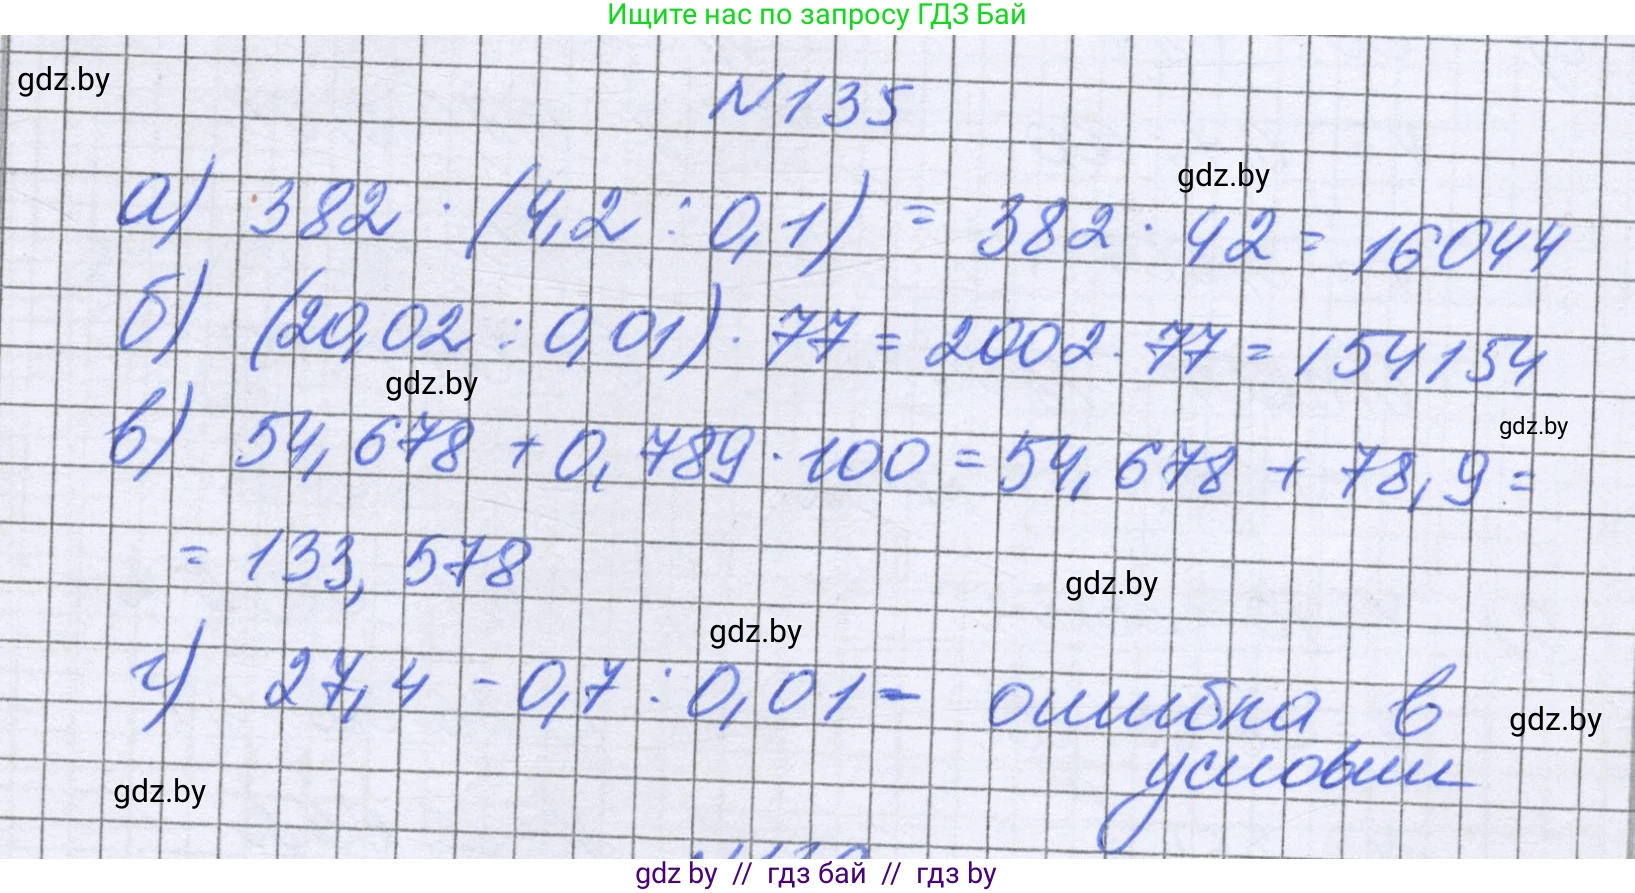 Ищите нас по запросу ГДЗ Бай
gdz.by
N135
gdz.by
а) 382 · (4,2 : 0,1) = 382 · 42 = 16044
б) (20,02 : 0,01) · 77 = 2002 · 77 = 154154
gdz.by
gdz.by
в) 54,678 + 0,789 · 100 = 54,678 + 78,9 =
= 133,578
gdz.by
gdz.by
г) 27,4 - 0,7 : 0,01 - ошибка в
gdz.by
условии
gdz.by
gdz by // гдз бай // гдз by